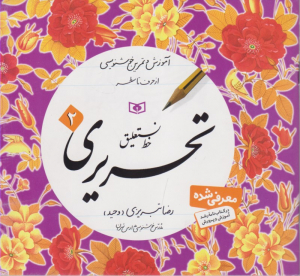 آموزش و تمرین خوشنویسی
از حرف تا سطر
خط نستعلیق
تحریری
۲
رضا تبریزی (وحید)
معرفی شده